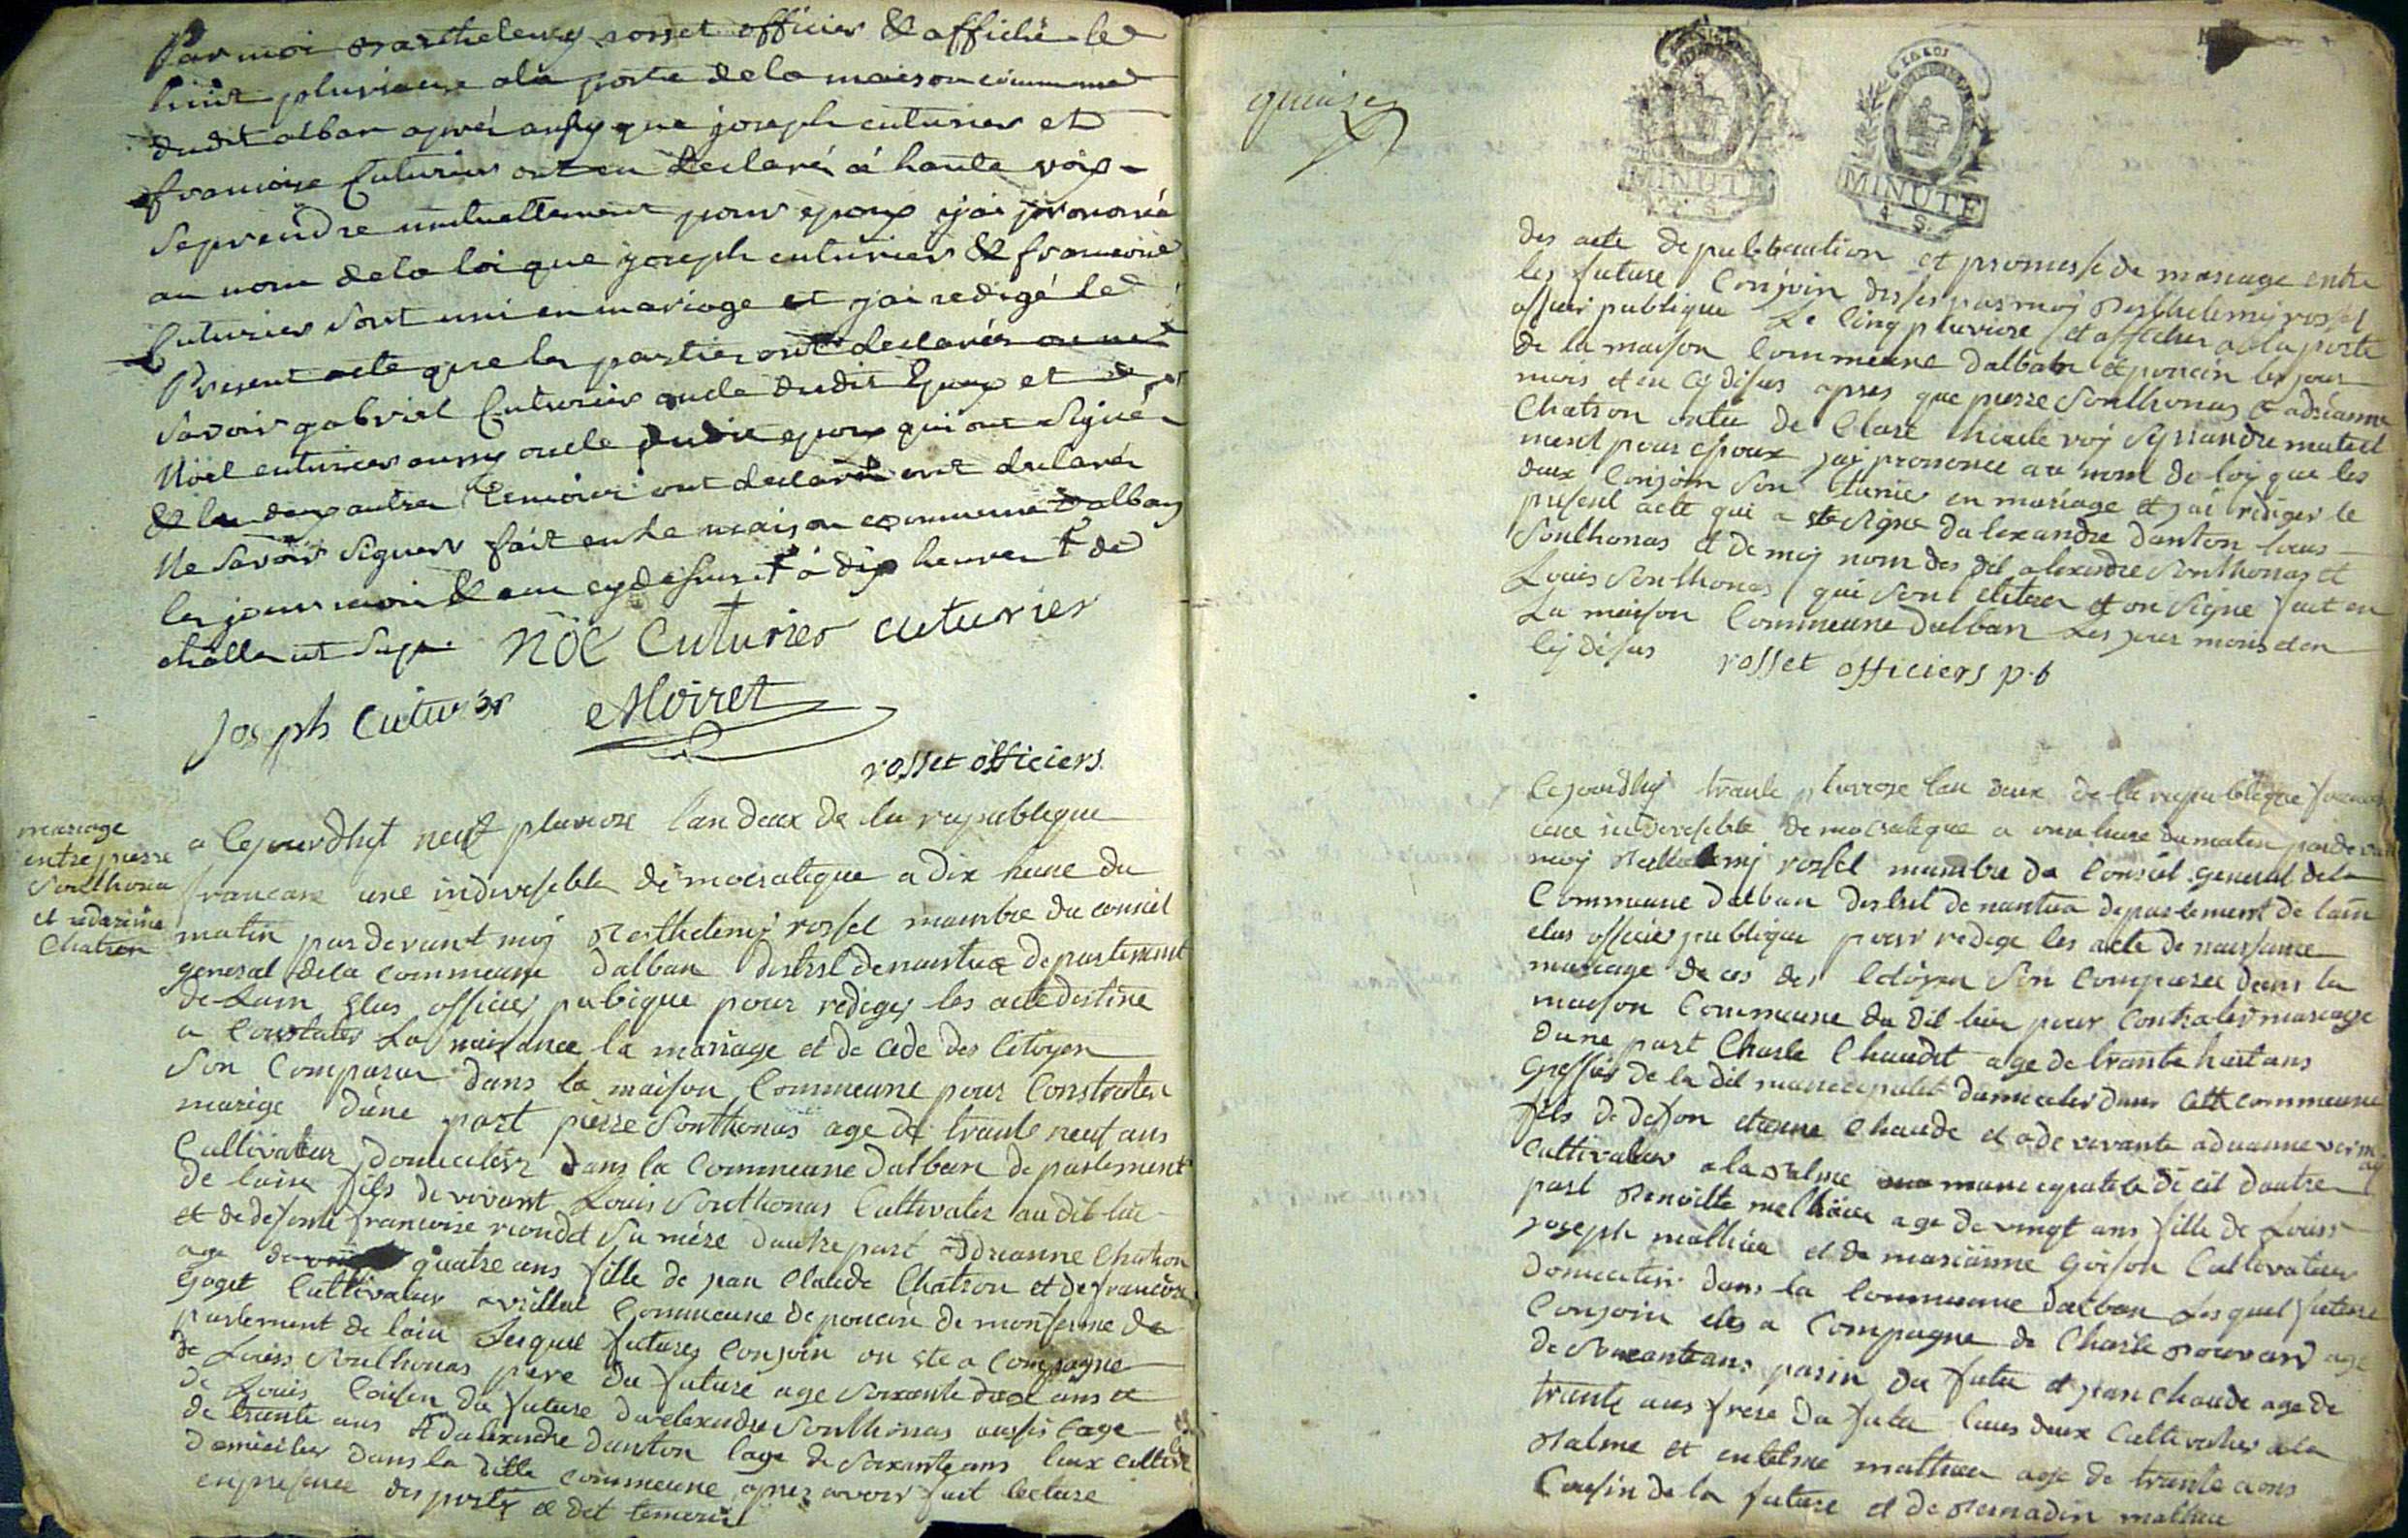 Par moi Barthelemy rosset officier & affiché le
huit pluviose a la porte de la maison commune
dudit alban aprés aussy que joseph cuturier et
francoise Cuturier ont eu declaré a haute voix
se prendre mutuellement pour epoux j'ai prononcé
au nom de la loi que joseph cuturier & francoise
Cuturier sont uni en mariage et j'ai redigé le
Present acte que les parties ont declarés
Savoir gabriel Cuturier oncle dudit Epoux et
Nöel cuturier aussy oncle dudit epoux qui ont signé
& les deux autres temoins ont declaré ont declaré
Ne savoir signer fait en la maison commune d'alban
les jour mois & an cy dessus t à dix heures t de
Nöe Cuturier cuturier
Joseph Cuturier Moiret
rosset officiers
mariage
entre pierre
Sonthona
et adrianne
Chatron
a Cejourdhuit neuf pluviose l'an deux de la republeque
francaise une indivesible démocratique a dix heure du
matin par devant moy Barthelemi rosset mambre du conseil
general de la commeune dalban destrit de nantua departement
de Lain Elus officier pubique pour rediger les acte destine
a Constater La naisance la mariage et de cede des Citoyen
Son Comparu dans la maison Commeune pour Constrater
marige d'une part pierre Sonthonas age de trante neuf ans
Cultivateur domicelier dans la Commeune Dalban departement
de lain fils de vivant Louis Sonthonas Cultivater au dit lui
et de defente francoise riondet Sa mére dautre part addrianne Chatron
age de quatre ans fille de jean Claude Chatron et de francoise
gaget Cultivateur a villet Commeune de poncin de montferme de
partement de lain lesquel futures Conjoin on ete a Compagne
de Louis Sonthonas pere du future age soixante dix ans et
de Louis Cousin du future dalexandre Sonthonas aussi lage
de trante ans et dalexandre danton lage de soixante ans
domicilier dans la ditte commeune apres avoir fait lecture
en presence des parti et det temoin
quinze
MINUTE
4 S.
MINUTE
4 S.
des acte de publication et promesse de mariage entre
les future Conjoin dresses par moy Barthelemi rosset
offisier publique Le Cinq pluviose et afficher a la porte
de la maison Commeune dalban et poncin les jour
mois et en cy desus apres que pierre Sonthonas & adrianne
Chatron ontu de Claré haute voy se prandre mutuel
ment pour epoux jai prononcé au nom de loy que les
deux Conjoin Son unier en mariage et jai rediger le
present acte qui a ete signe dalexandre danton
Sonthonas et de moy nom des dit alexandre Sonthonas et
Louis Sonthonas qui Sont et on Signe fait en
La maison Commeune dalban Les jour mois et en
Cy désus rosset officiers p.b
Cejourdhuy trante pluviose lan deux de la republeque
une indivesible democratique a onze heure du matin par devan
moy Barthelemi rosset mambre du Conseil general dela
Commeune dalban destrit de nantua departement de lain
elus officier publique pour redige les acte de naissance
mariage de ces des Citoyen Son Comparu dans la
maison Commeune du dit lieu pour Contrater mariage
dune part Charle Chaudet age de trante huit ans
greffier de la dit municipalité damicelier dans cette commeune
fils de defon etienne Chaude et de vivante adrianne
Cultivateur a la Balme municipalite de cil d'autre
part Benoitte mathieu age de vingt ans fille de Louis
joseph mathieu et de marianne goison Cultivateur
domicelier dans la Commeune dalban Lesquel future
Conjoin etes a Compagne de Charle age
de Soixante ans parin du futu et jean Chaude age de
trante ans frere du futu tous deux Cultivater a la
Balme et mathieu age de trante aons
Cousin de la future et de Bernadin mathieu